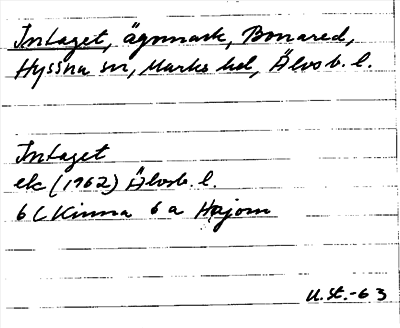 Intaget, ägomark, Bonared,
Hyssna sn, Marks hd, Älvsb. l.
Intaget
ek (1962) Älvsb. l.
6 C Kinna 6 a Hajom
U.St.-63